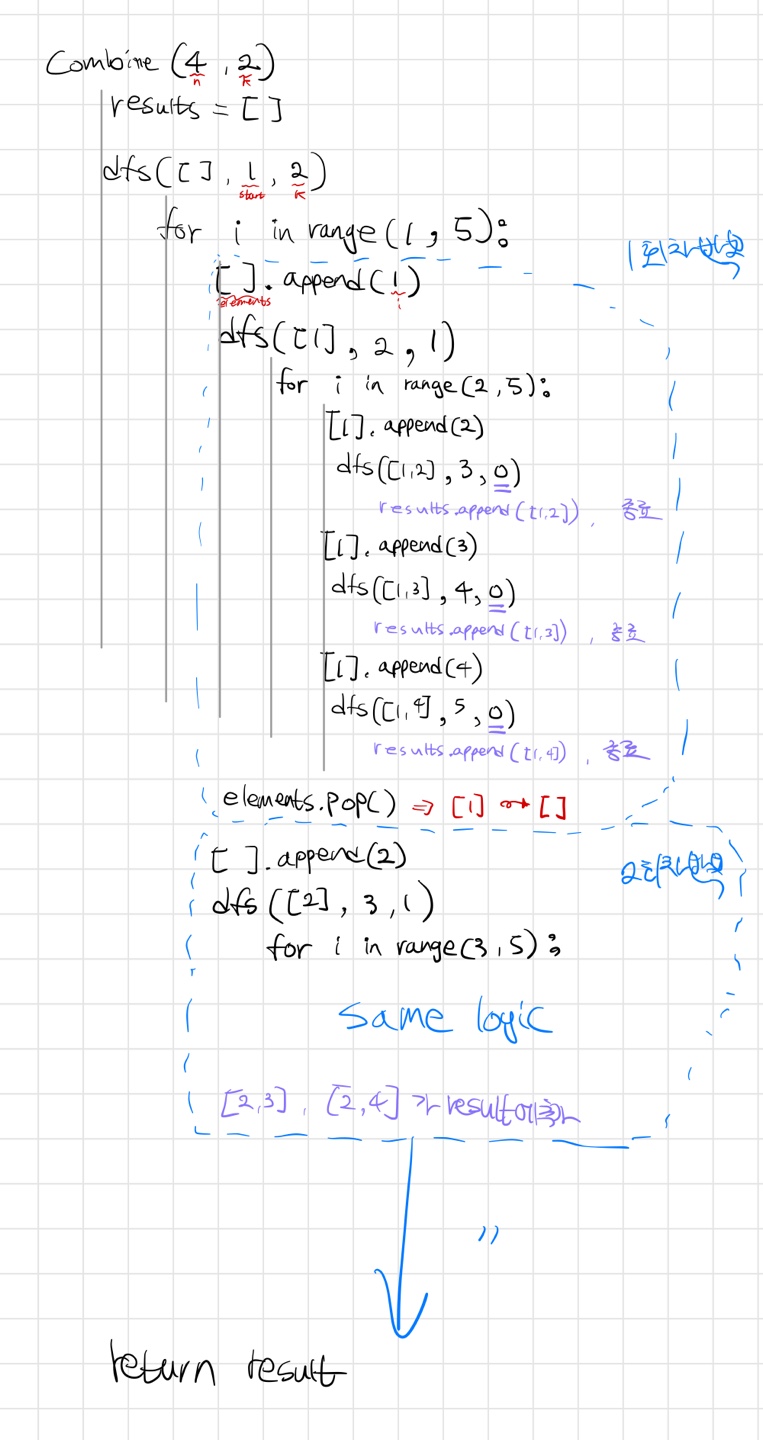 Combine (4, 2)
n k
results = []
dfs([], 1, 2)
start k
for i in range(1, 5):
1회차반복
[].append(1)
elements i
dfs([1], 2, 1)
for i in range(2,5):
[1].append(2)
dfs([1,2], 3, 0)
results.append([1,2]), 종료
[1].append(3)
dfs([1,3], 4, 0)
results.append([1,3]), 종료
[1].append(4)
dfs([1,4], 5, 0)
results.append([1,4]), 종료
elements.pop() ⇒ [1] → []
[].append(2)
2회차반복
dfs([2], 3, 1)
for i in range(3,5):
same logic
[2,3], [2,4]가 result에추가
〃
return result